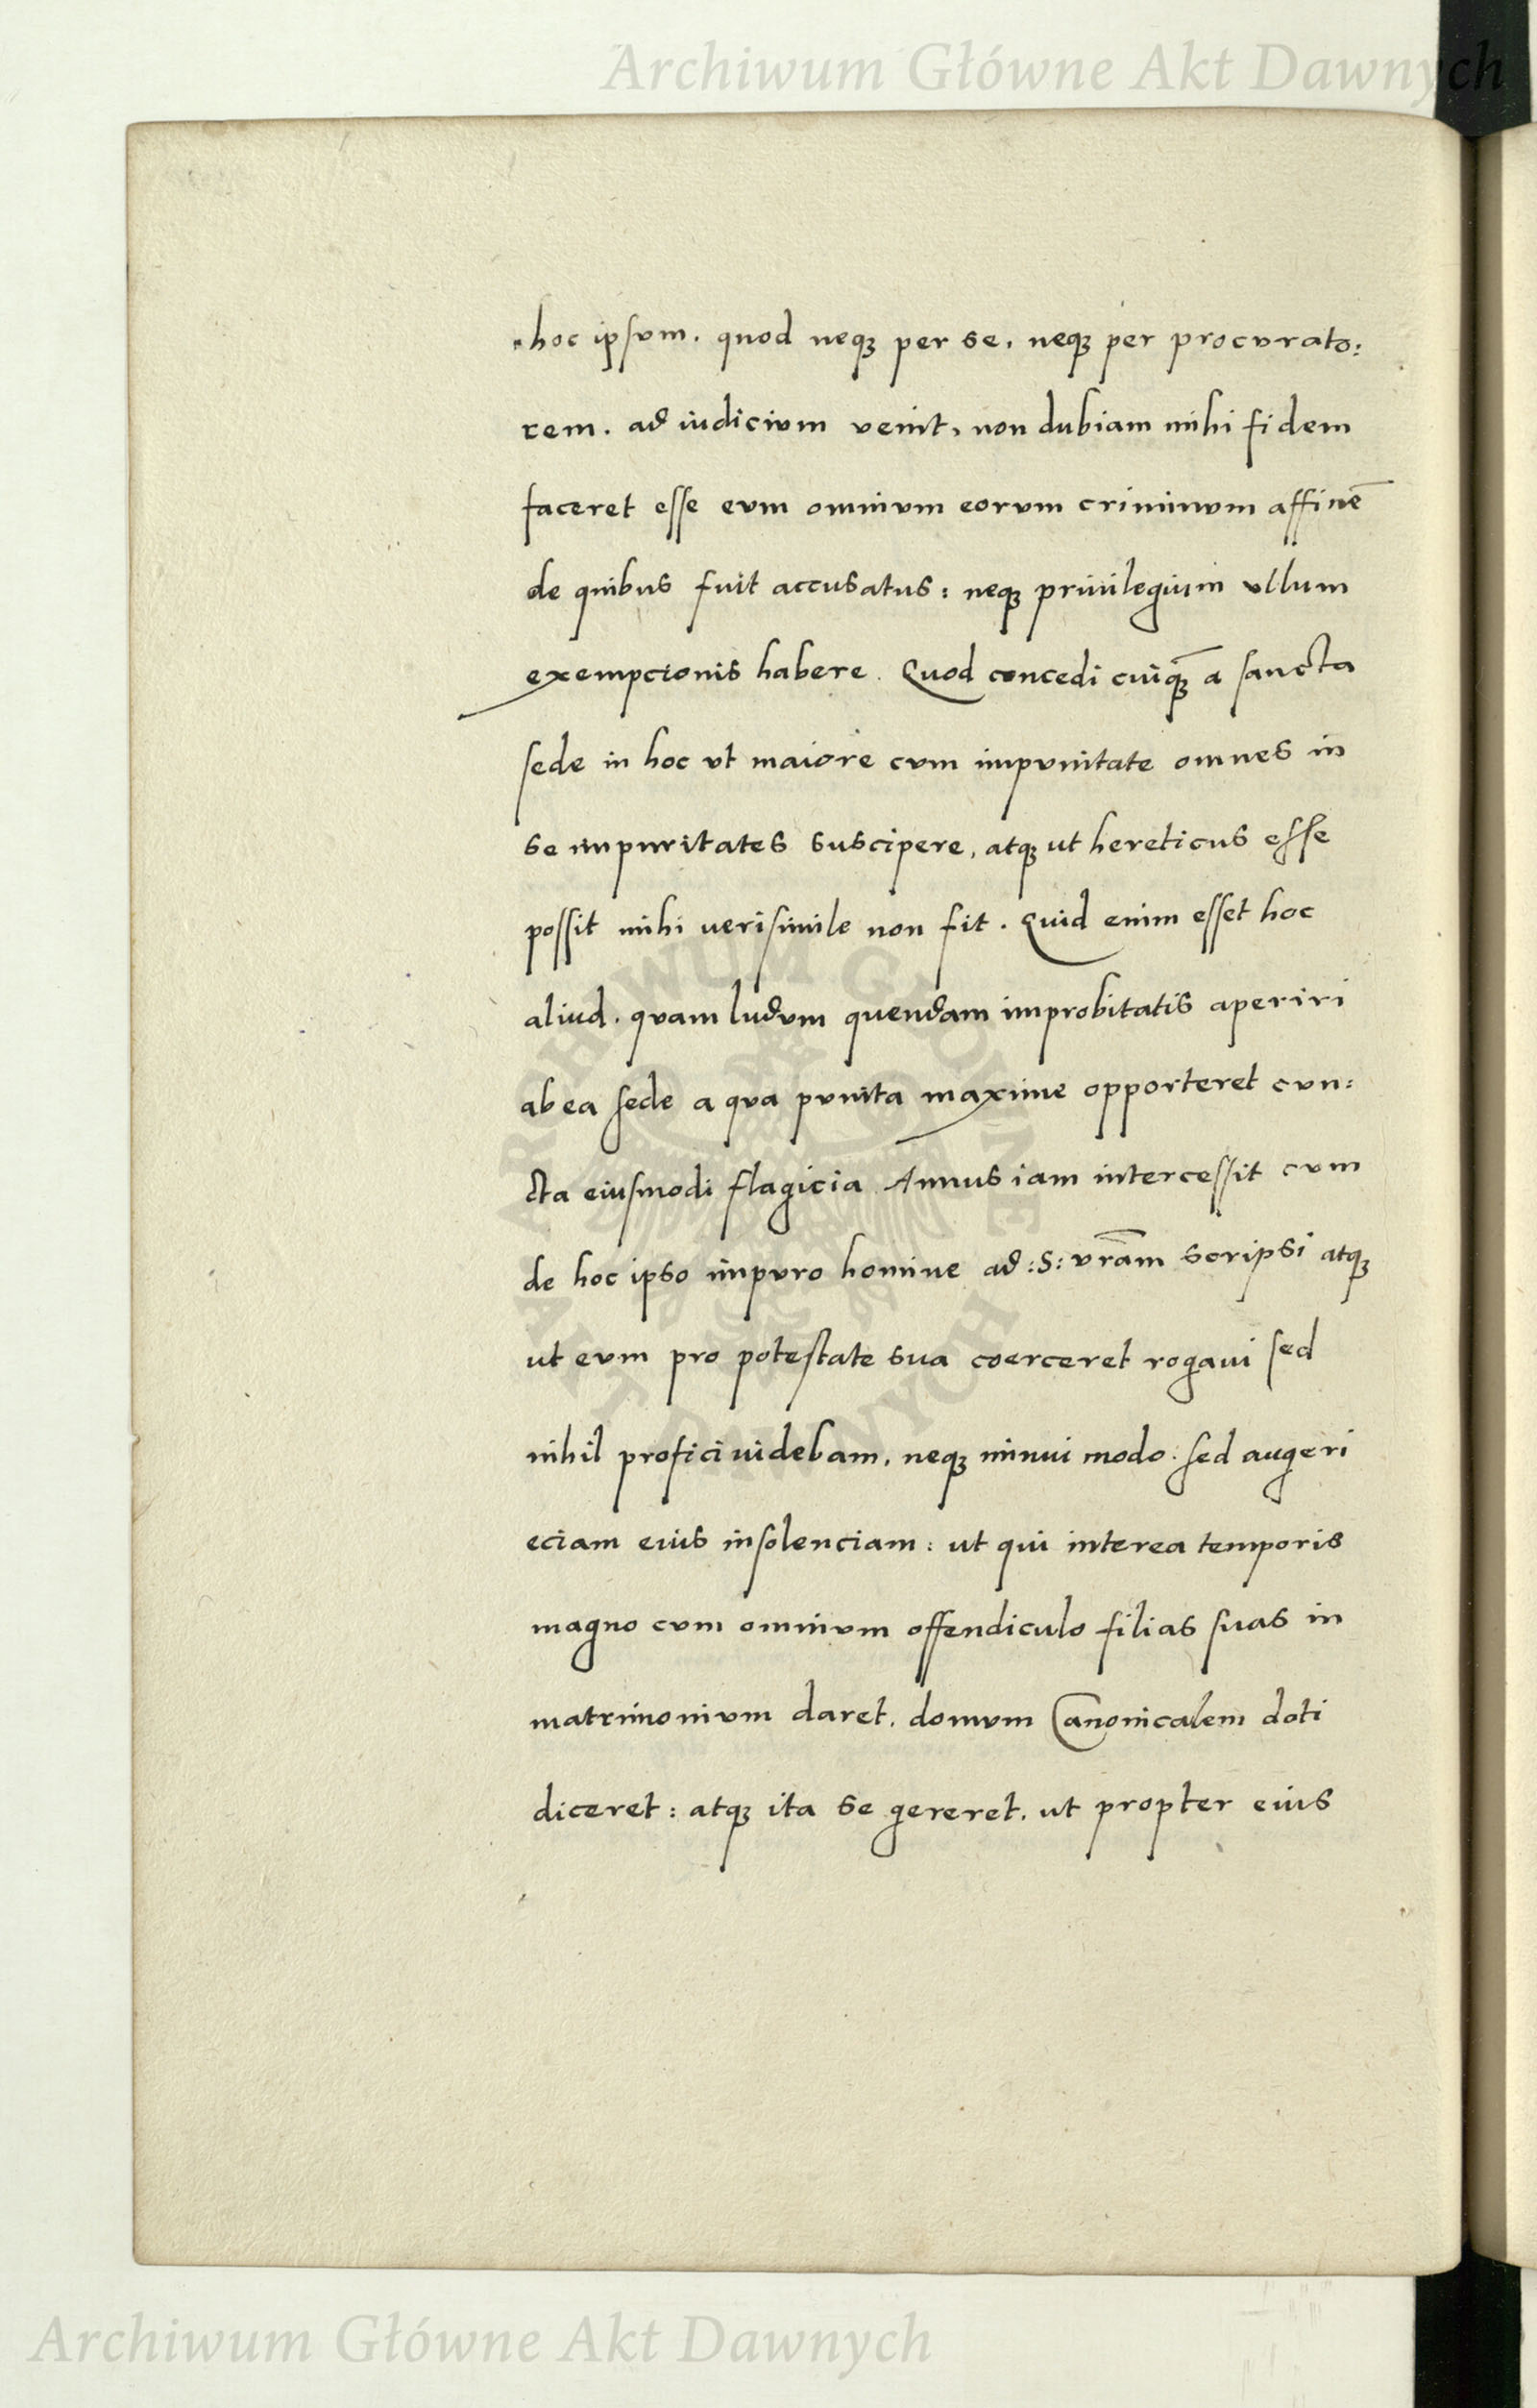 Archiwum Główne Akt Dawnych
hoc ipsvm. quod neqꝫ per se, neqꝫ per procvrato:
rem. ad iudicivm venit, non dubiam mihi fidem
faceret esse evm omnivm eorvm criminvm affinē
de quibus fuit accusatus: neqꝫ priuilegium vllum
exempcionis habere. Quod concedi cuiqꝫ̄ a sancta
sede in hoc vt maiore cvm impvnitate omnes in
se impuritates suscipere, atqꝫ ut hereticus esse
possit mihi uerisimile non fit. Quid enim esset hoc
aliud. qvam ludvm quendam improbitatis aperiri
ab ea sede a qva pvnita maxime opporteret cvn:
cta eiusmodi flagicia Annus iam intercessit cvm
de hoc ipso impvro homine ad :S: vrā̄m scripsi atqꝫ
ut evm pro potestate sua coerceret rogaui sed
nihil profici uidebam, neqꝫ minui modo. sed augeri
eciam eius insolenciam: ut qui interea temporis
magno cvm omnivm offendiculo filias suas in
matrimonivm daret. domvm Canonicalem doti
diceret: atqꝫ ita se gereret. ut propter eius
ARCHIWUM GŁÓWNE
AKT DAWNYCH
Archiwum Główne Akt Dawnych